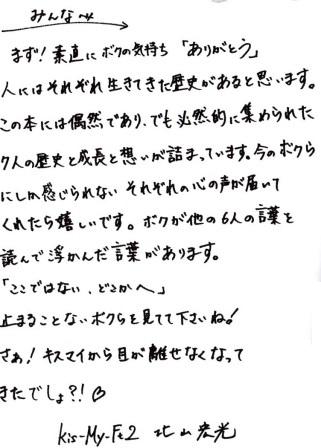 みんなへ
まず!素直にボクの気持ち「ありがとう」
人にはそれぞれ生きてきた歴史があると思います。
この本には偶然であり、でも必然的に集められた
7人の歴史と成長と想いが詰まっています。今のボクら
にしか感じられないそれぞれの心の声が届いて
くれたら嬉しいです。ボクが他の6人の言葉を
読んで浮かんだ言葉があります。
「ここではない、どこかへ」
止まることないボクらを見てて下さいね!
さぁ!キスマイから目が離せなくなって
きたでしょ?!♡
Kis-My-Ft2 北山宏光